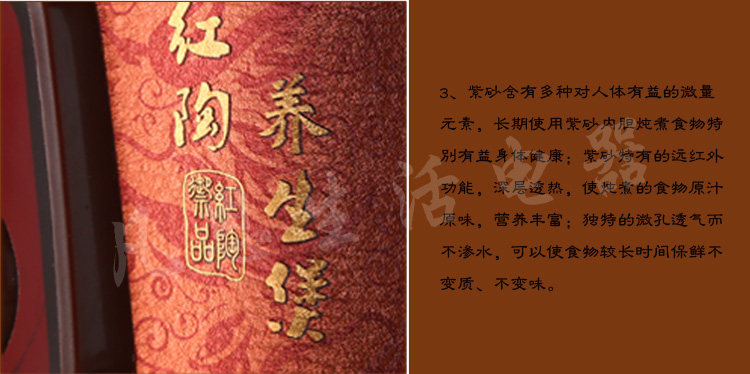 红陶
养生煲
紅陶
御品
3、紫砂含有多种对人体有益的微量
元素，长期使用紫砂内胆炖煮食物特
别有益身体健康；紫砂特有的远红外
功能，深层透热，使炖煮的食物原汁
原味，营养丰富；独特的微孔透气而
不渗水，可以使食物较长时间保鲜不
变质、不变味。
生活电器